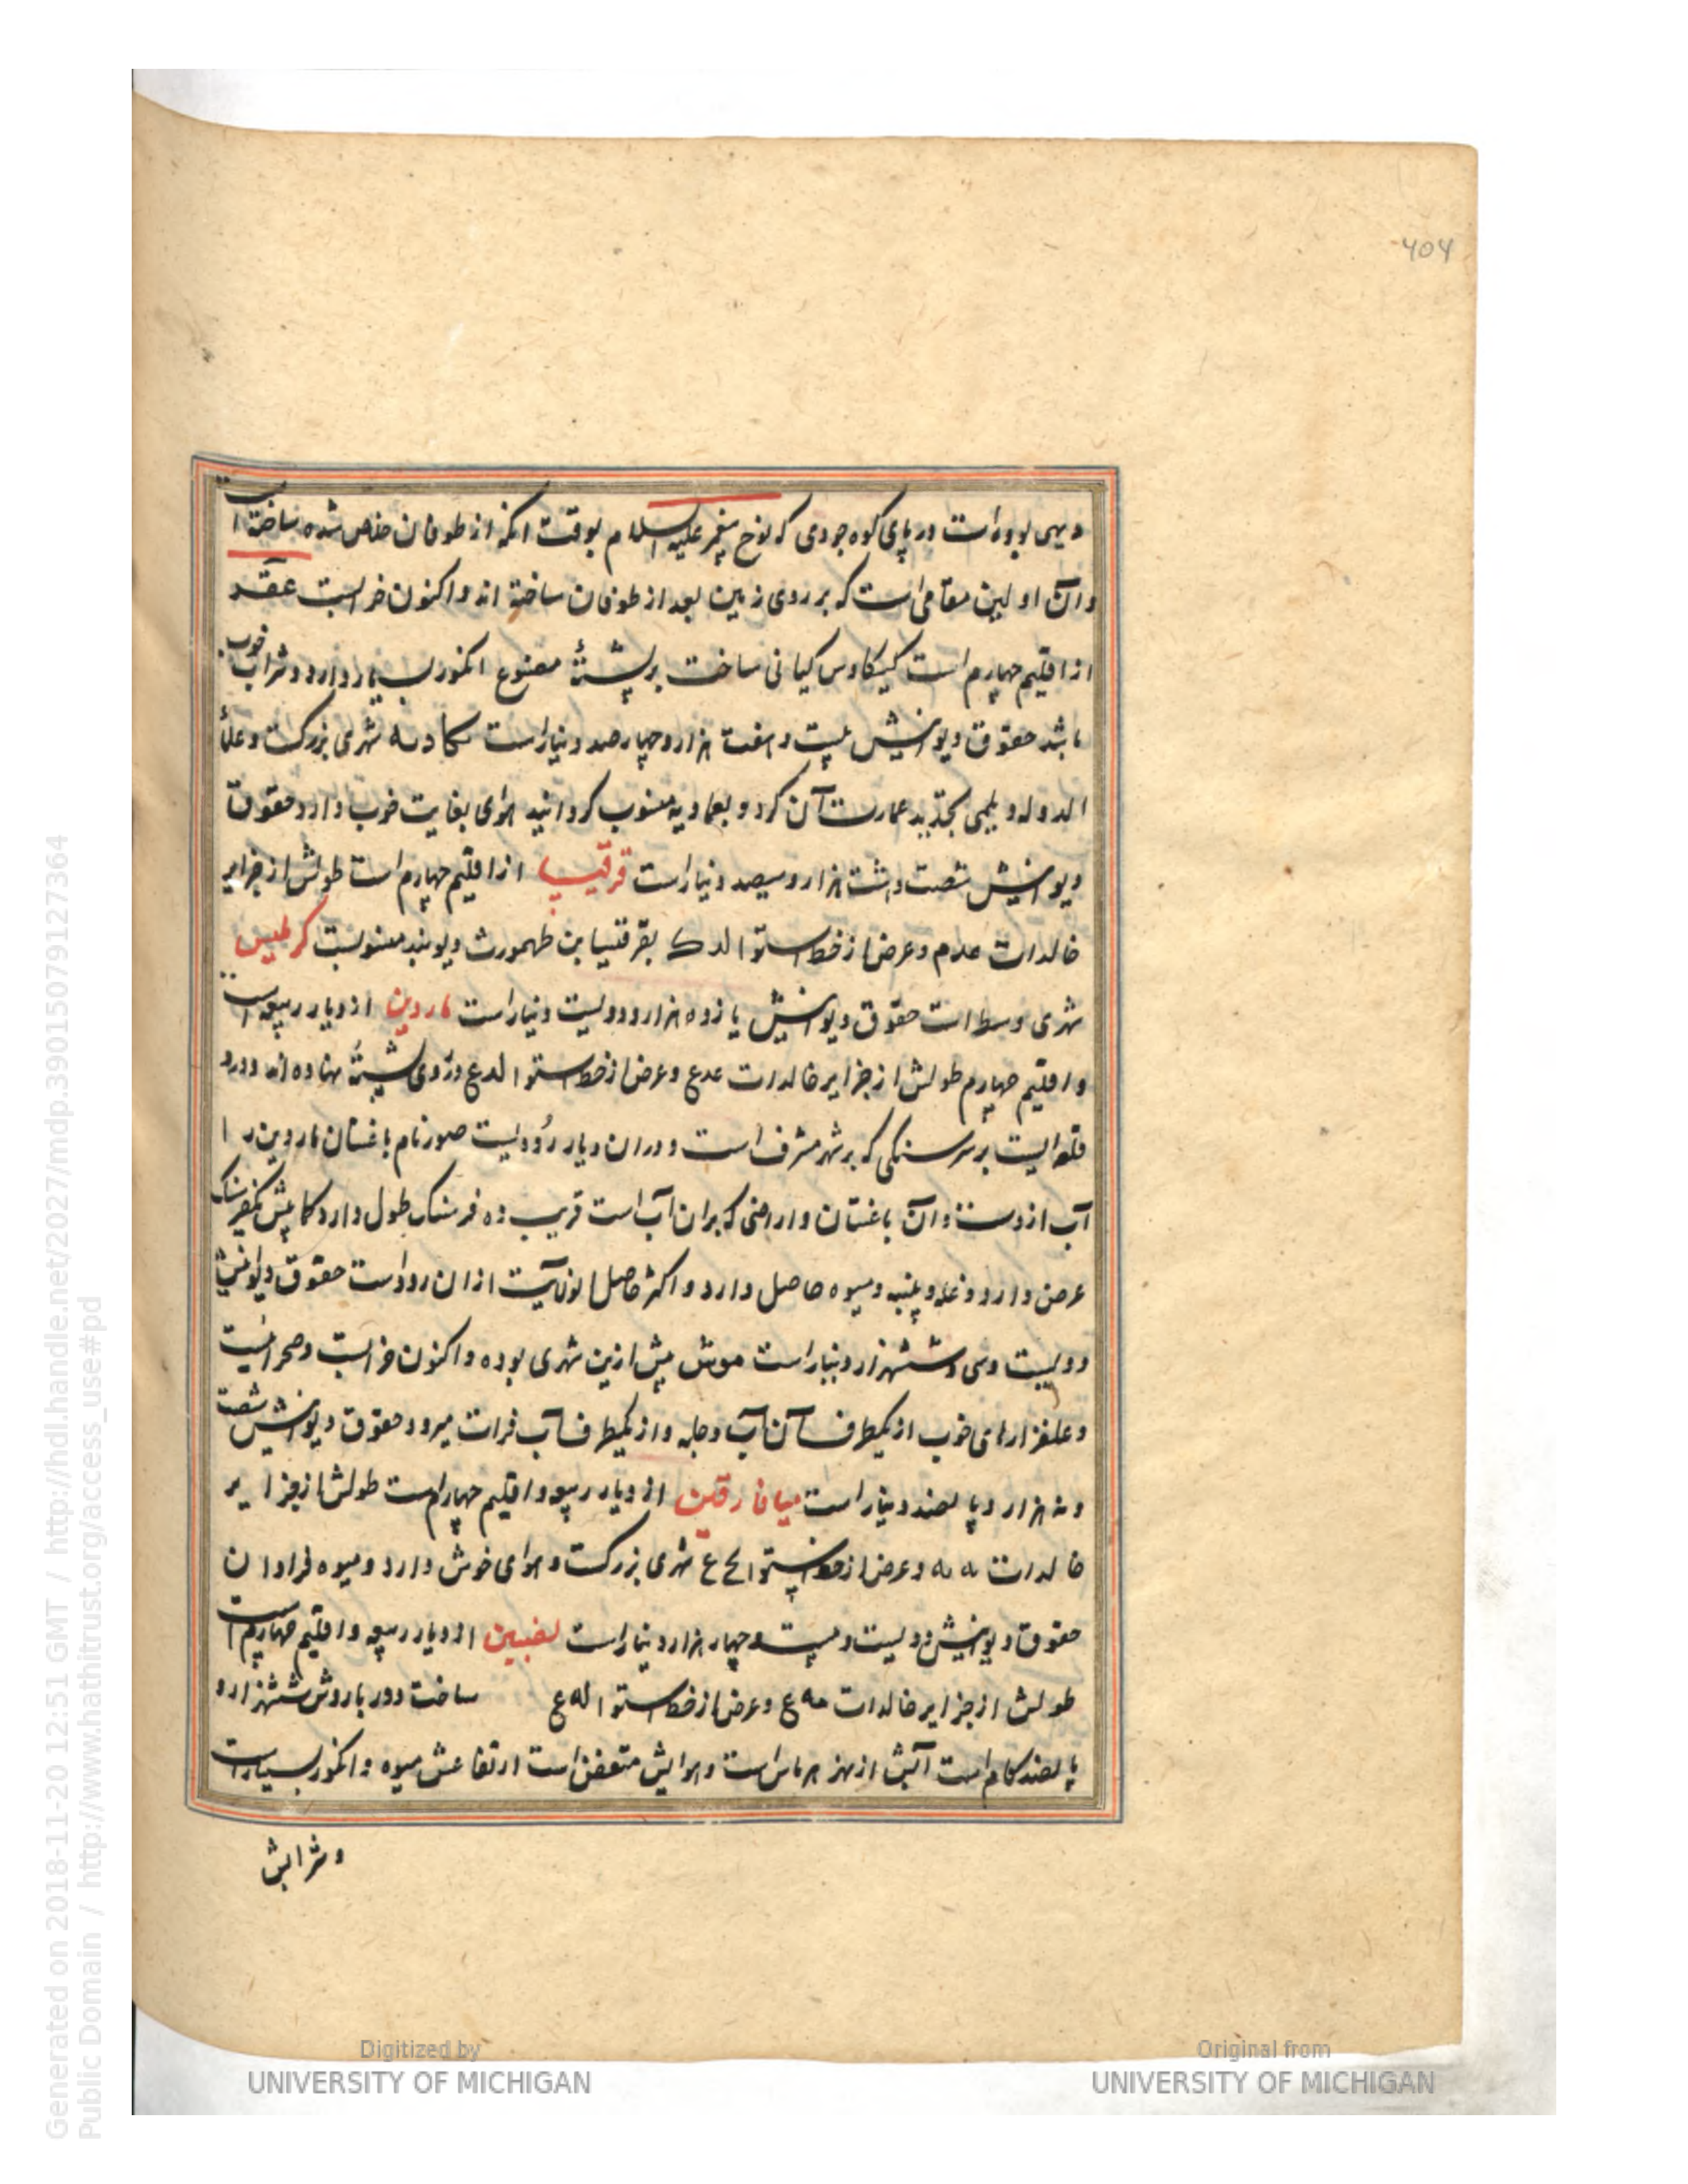 404
دیهی بوده است در پای کوه جودی که نوح پیغمبر علیه السلام بوقت انکه از طوفان خلاص شده ساخته است
وآن اولین مقامی است که بر روی زمین بعد از طوفان ساخته اند واکنون خرابست عقد
از اقلیم چهارم است کیکاوس کیانی ساخت بر پشتهٔ مصنوع انکور بسیار دارد وشراب خوب
باشد حقوق دیوانیش بیست وهفت هزار وچهارصد دینار است عمادیه شهری بزرکست وعلاٰ
الدوله ویلمی تجدید عمارت آن کرد وبعمادیه منسوب کردانید هوای بغایت خوب دارد حقوق
دیوانیش شصت وهشت هزار وسیصد دینار است قرقیسا از اقلیم چهارم است طولش از جزایر
خالدات عدم وعرض از خط استوا لدک بقرقیسا بن طهمورث دیوبند منسوبست کرملیس
شهری وسط است حقوق دیوانیش یازده هزار ودویست دینار است ماردین از دیار ربیعه است
واقلیم چهارم طولش از جزایر خالدات عدع وعرض از خط استوا لدع وروی پشتهٔ نهاده اند ودرو
قلعه ایست بر سر سنکی که بر شهر مشرف است ودران دیار رودیست صور نام باغستان ماردین را
آب ازوست وآن باغستان واراضی که بران آب است قریب ده فرسنک طول دارد کما بیش یکفرسنک
عرض دارد وغله وپنبه ومیوه حاصل دارد واکثر حاصل انولایت ازان رودست حقوق دیوانیش
دویست وسی وششهزار دینار است موش پیش ازین شهری بوده واکنون خرابست وصحرائیست
وعلفزارهای خوب از یکطرف آن آب دجله واز یکطرف آب فرات میرود حقوق دیوانیش شصت
ونه هزار وپانصد دینار است میافارقین از دیار ربیعه واقلیم چهارم است طولش از جزایر
خالدات عه یه وعرض از خط استوا لح ع شهری بزرکست وهوای خوش دارد ومیوه فراوان
حقوق دیوانیش دویست وبیست وچهار هزار دینار است نصیبین از دیار ربیعه واقلیم چهارم است
طولش از جزایر خالدات عه ع وعرض از خط استوا له ع ساخت دور باروش ششهزار و
پانصد کام است آبش از نهر هرماس است وهوایش متعفن است ارتفاعش میوه وانکور بسیارست
وشرابش
Digitized by
UNIVERSITY OF MICHIGAN
Original from
UNIVERSITY OF MICHIGAN
Generated on 2018-11-20 12:51 GMT / http://hdl.handle.net/2027/mdp.39015079127364
Public Domain / http://www.hathitrust.org/access_use#pd